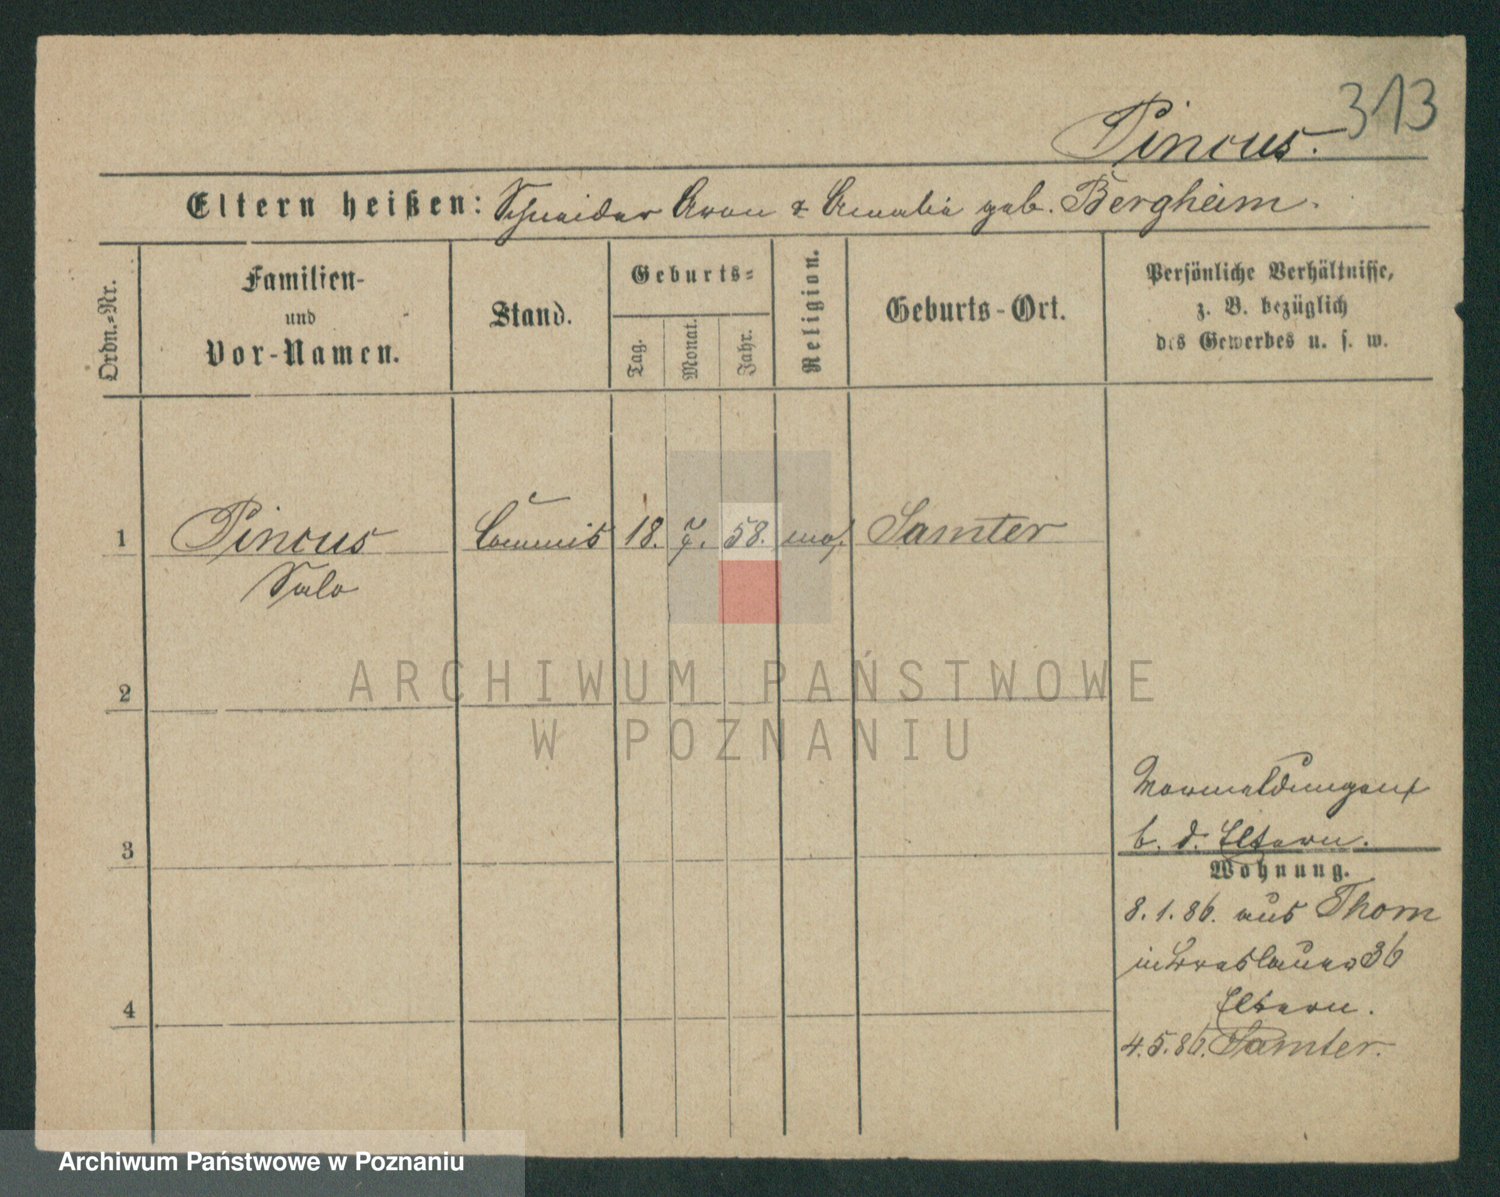 313
Pincus.
Eltern heißen: Schneider Aron & Amalie geb. Bergheim.
Ordn.-Nr.
Familien-
und
Vor-Namen.
Stand.
Geburts-
Tag.
Monat.
Jahr.
Religion.
Geburts-Ort.
Persönliche Verhältnisse,
z. B. bezüglich
des Gewerbes u. s. w.
1 Pincus Commis 18. 7. 58. mos. Samter
Salo
2
ARCHIWUM PAŃSTWOWE
W POZNANIU
3
4
b. d. Eltern.
Wohnung.
8.1.86. aus Thorn
in Breslauer 36
Eltern.
4.5.86. Samter.
Archiwum Państwowe w Poznaniu